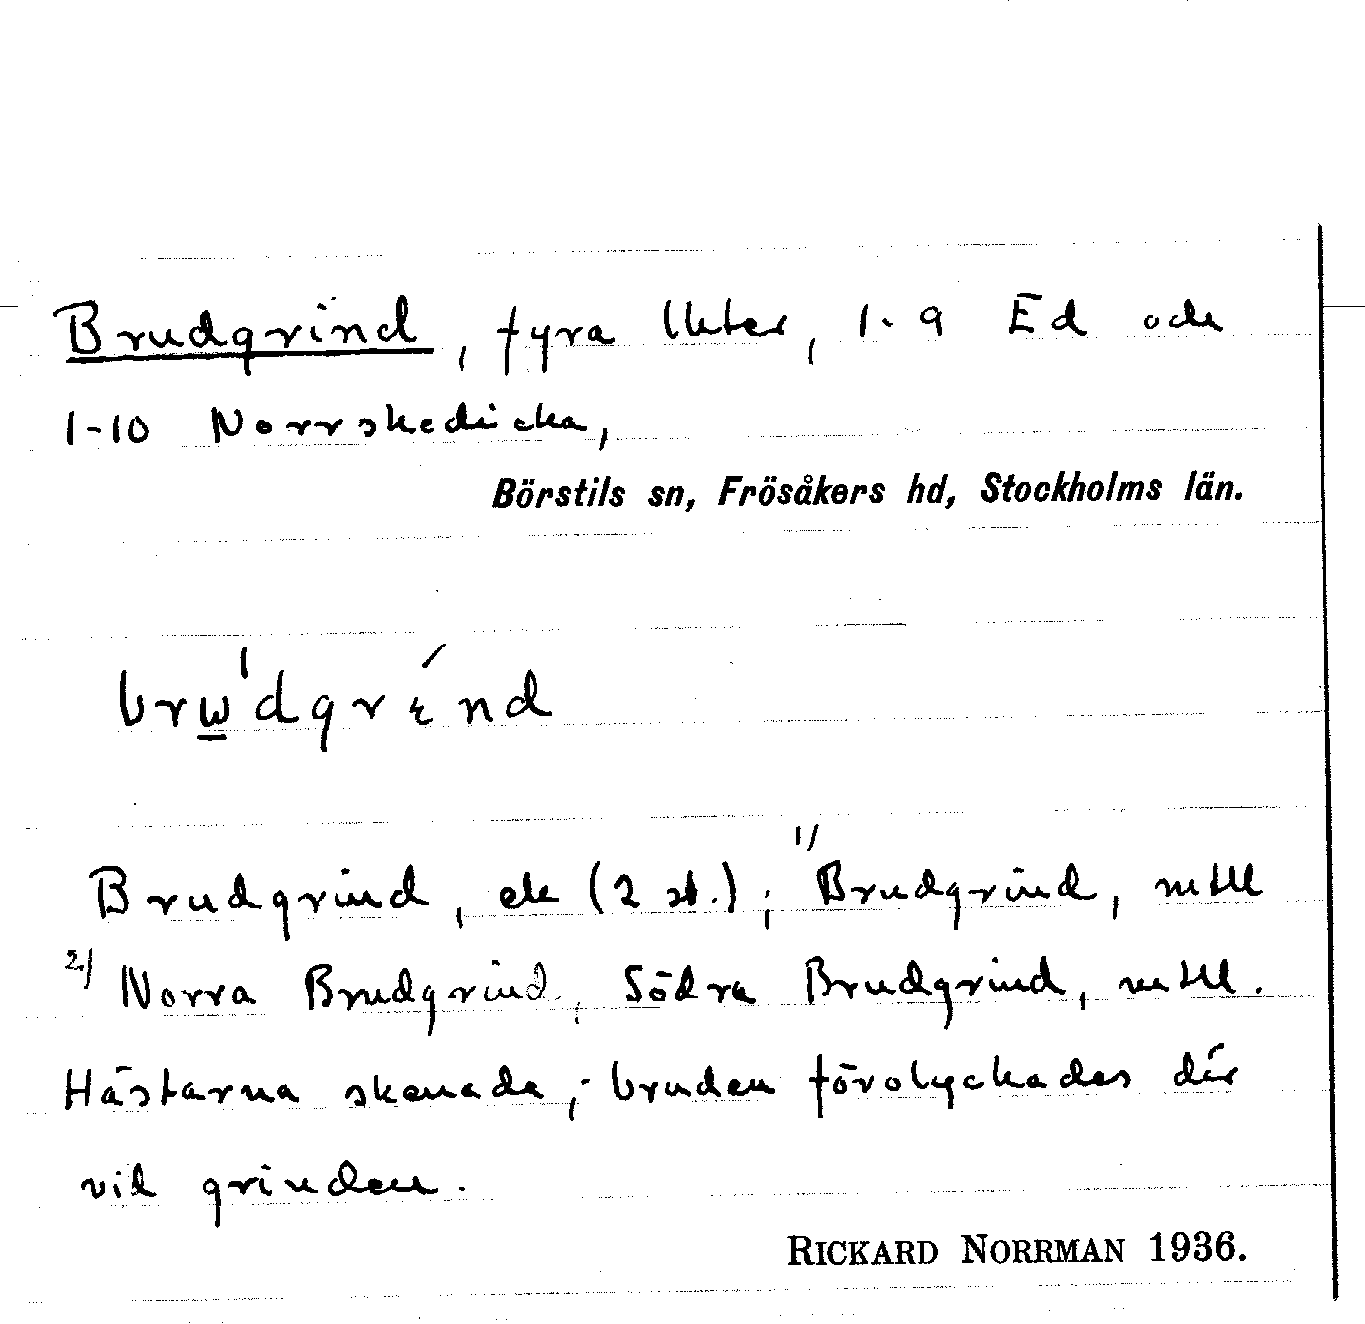 Brudgrind, fyra lktes, 1-9 Ed och
1-10 Norrskedicka,
Börstils sn, Frösåkers hd, Stockholms län.
brw̲'dgrénd
Brudgrind, ek (2 st.); 1/ Brudgrind, mtll
2/ Norra Brudgrind, Södra Brudgrind, mtll.
Hästarna skenade; bruden förolyckades där
vid grinden.
RICKARD NORRMAN 1936.